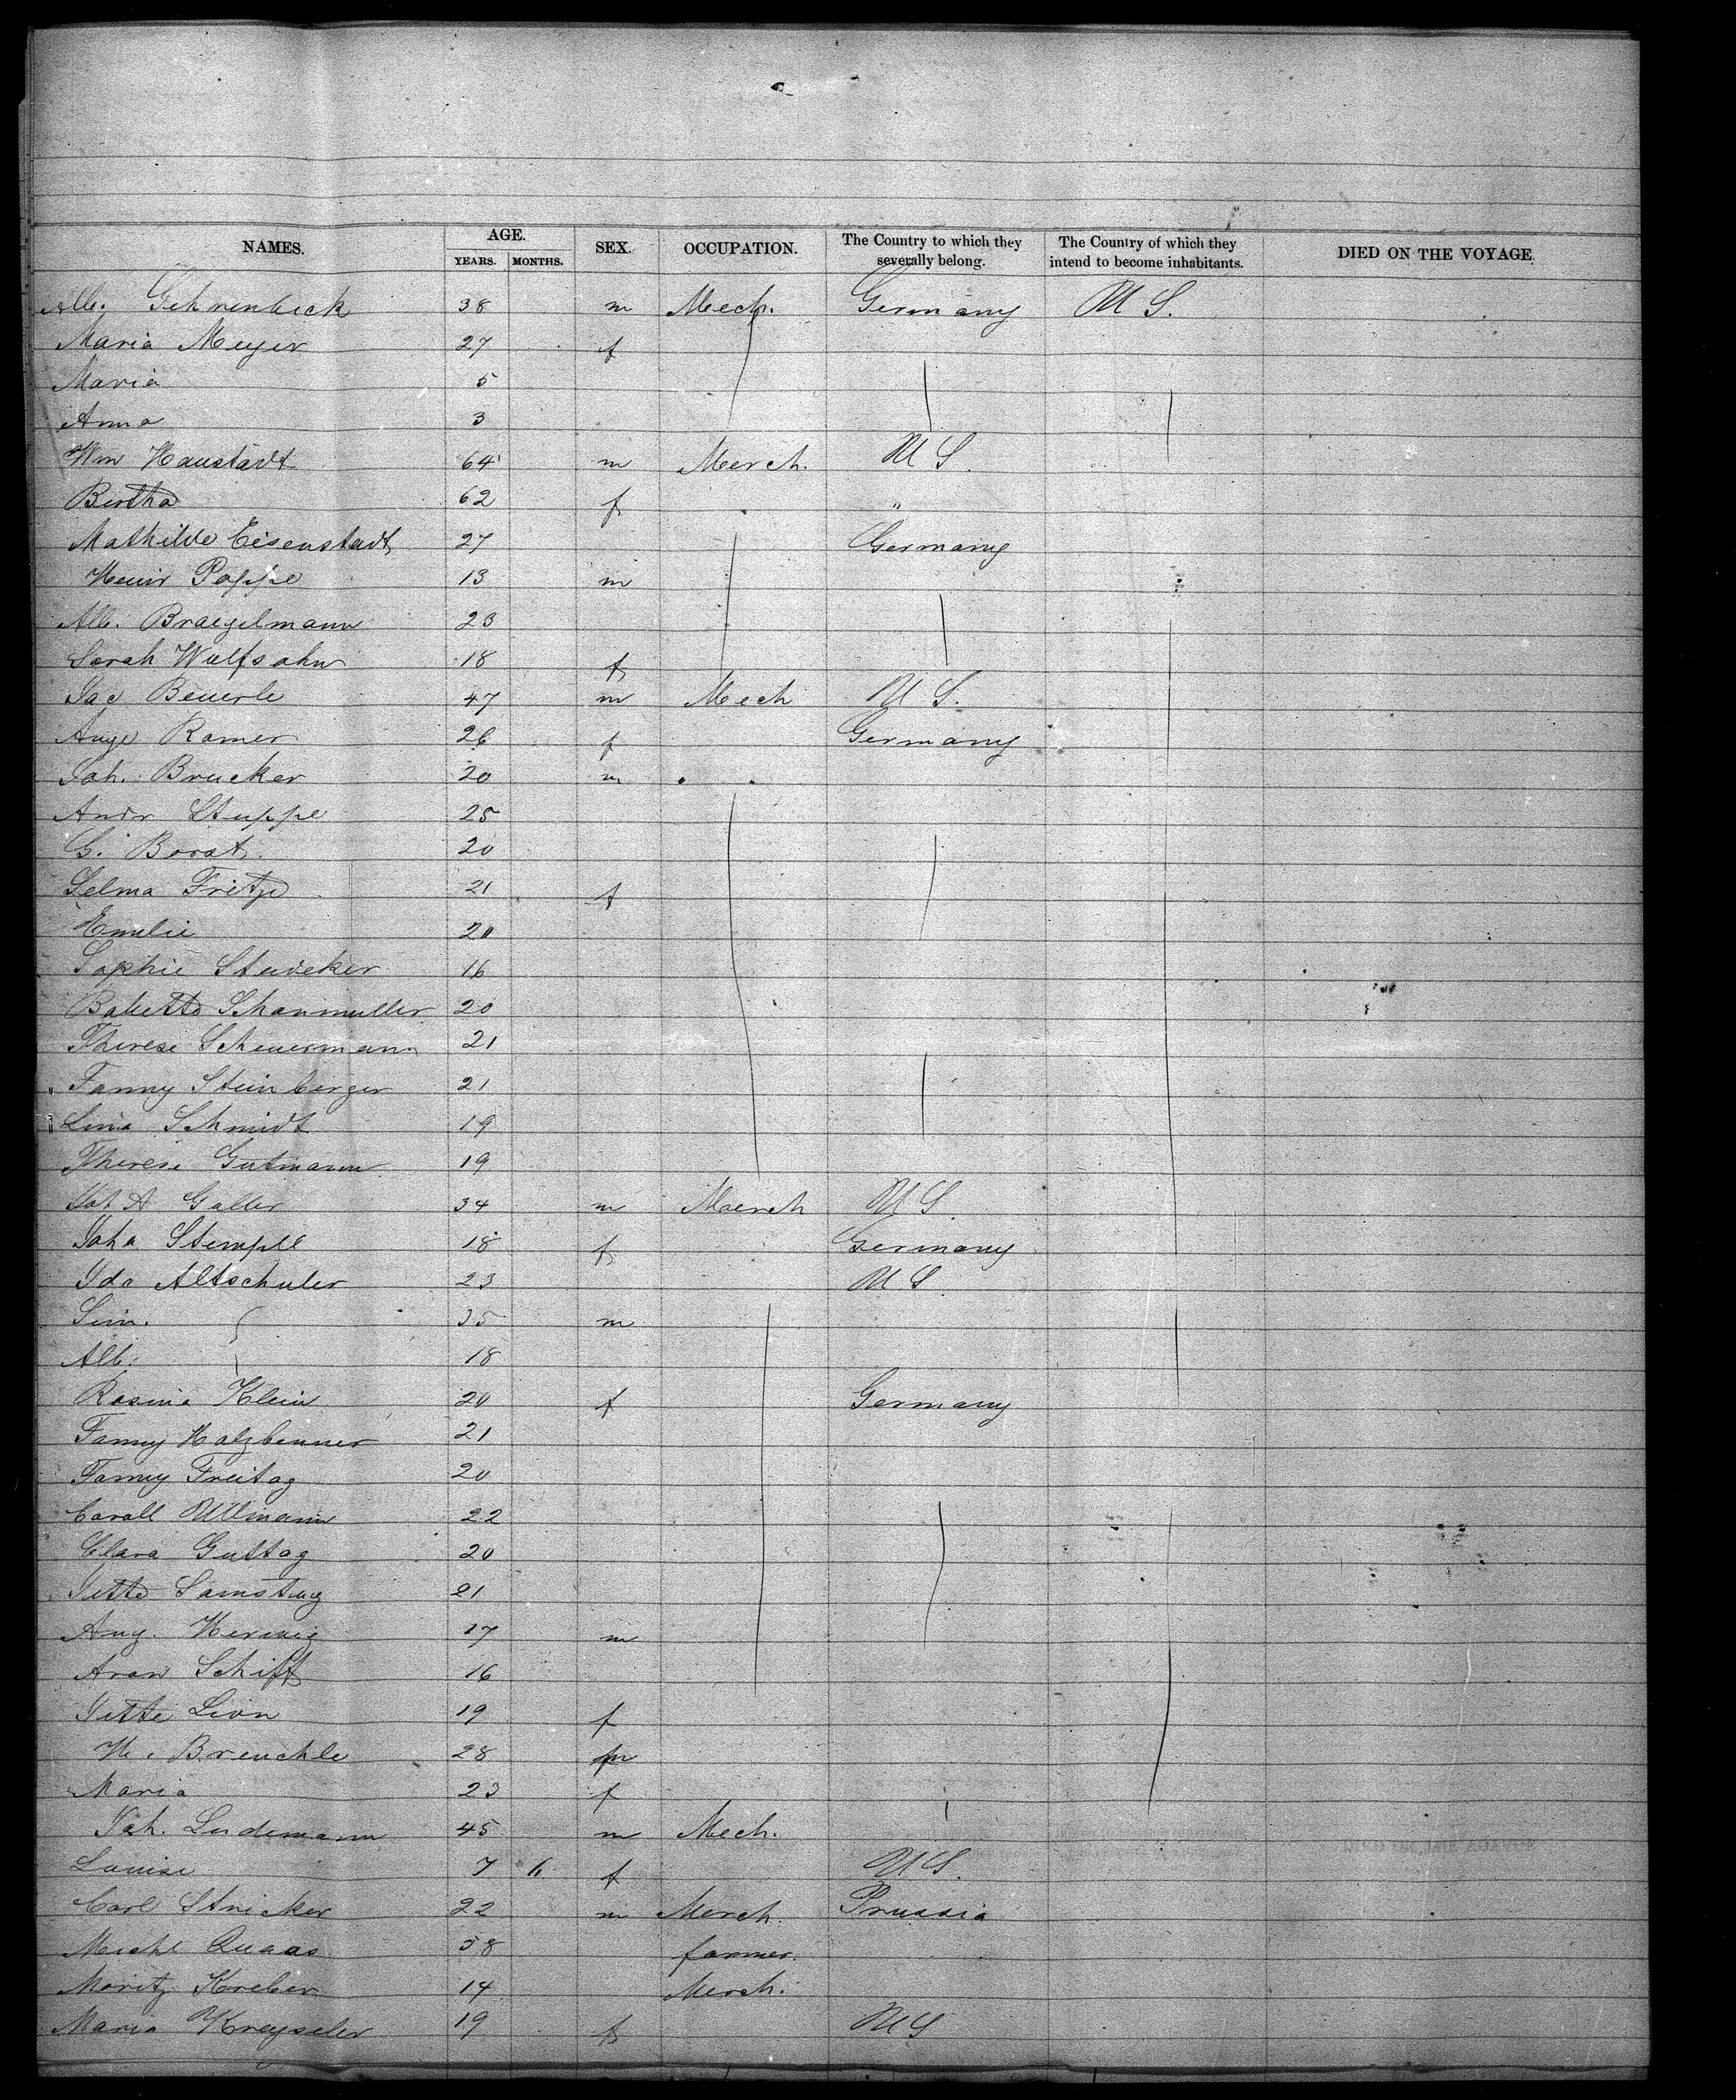 NAMES. AGE. SEX. OCCUPATION. The Country to which they severally belong. The Country of which they intend to become inhabitants. DIED ON THE VOYAGE.
YEARS. MONTHS.
Alb. Gehrenbeck 38 m Mech. Germany U S.
Maria Meyer 27 f
Maria 5
Anna 3
Wm Haustadt 64 m Merch. U S.
Bertha 62 f "
Mathilde Eisenstadt 27 Germany
Heinr Poppe 13 m
Alb. Braegelmann 23
Sarah Wulfsohn 18 f
Jac Beuerle 47 m Mech U S.
Auge Romer 26 f Germany
Joh. Brucker 20 m
Andr Stuppe 25
G. Borat. 20
Selma Fritze 21 f
Emelie 20
Sophie Stuveker 16
Babette Schanmuller 20
Therese Scheuermann 21
Fanny Steinberger 21
Lina Schmidt 19
Therese Gutmann 19
A Galler 34 m Maerch U S.
Joha Stempel 18 f Germany
Ida Altschuler 23 U S
Sim. 35 m
Alb. 18
Rosina Klein 20 f Germany
Fanny Holzbenner 21
Fanny Freitag 20
Caroll Ullmann 22
Clara Guttag 20
Jette Samstag 21
Aug. Herwig 17 m
Aron Schiff 16
Jette Lion 19 f
H. Breuchle 28 m
Maria 23 f
Joh. Ludemann 45 m Mech.
Louise 7 6 f U S.
Carl Stricker 22 m Merch. Prussia
Michl Quaas 58 farmer.
Moritz Kreber 14 Merch.
Maria Kreyseler 19 f U S